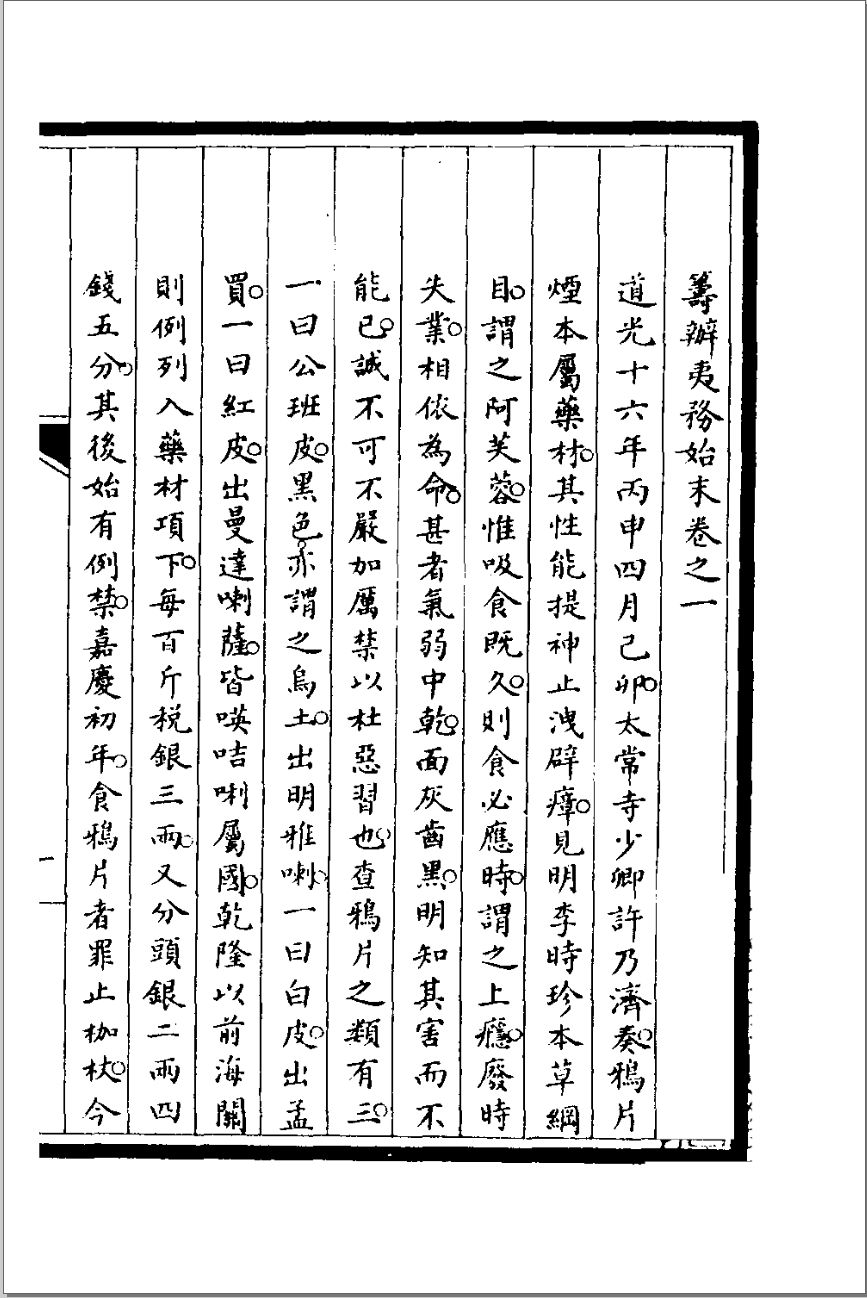 籌辦夷務始末卷之一
道光十六年丙申四月己卯。太常寺少卿許乃濟奏。鴉片
煙本屬藥材。其性能提神止洩辟瘴。見明李時珍本草綱
目。謂之阿芙蓉。惟吸食既久。則食必應時。謂之上癮。廢時
失業。相依為命。甚者氣弱中乾。面灰齒黑。明知其害而不
能已。誠不可不嚴加厲禁以杜惡習也。查鴉片之類有三。
一曰公班皮。黑色。亦謂之烏土。出明雅喇。一曰白皮。出孟
買。一曰紅皮。出曼達喇薩。皆𠸄咭唎屬國。乾隆以前海關
則例列入藥材項下。每百斤稅銀三兩。又分頭銀二兩四
錢五分。其後始有例禁。嘉慶初年。食鴉片者罪止枷杖。今